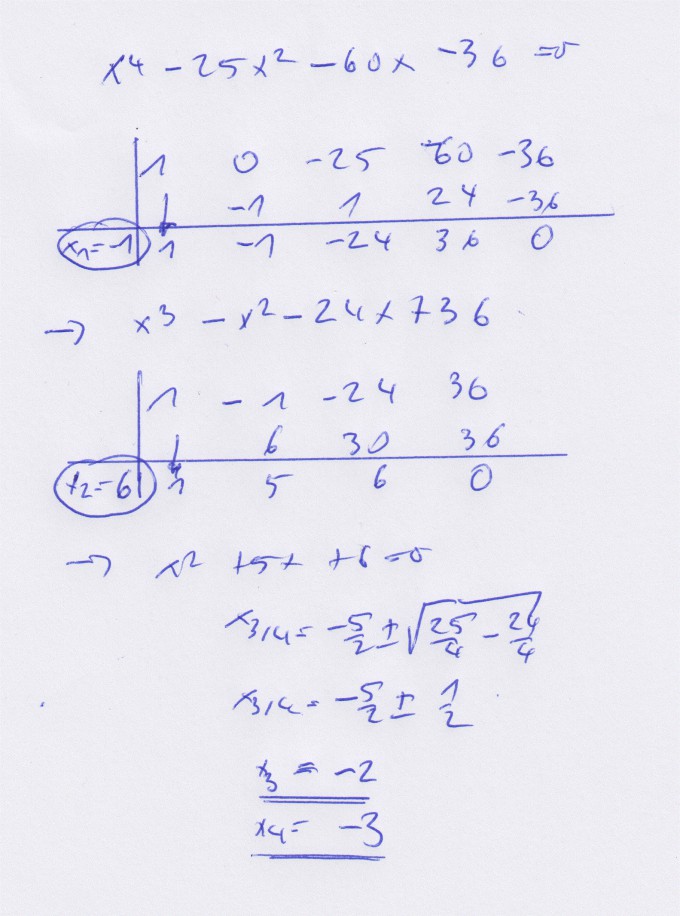 x⁴ - 25x² - 60x - 36 = 0
1 0 -25 -60 -36
-1 1 24 -36
x₁=-1 1 -1 -24 36 0
→ x³ - x² - 24x 736
1 -1 -24 36
6 30 36
x₂=6 1 5 6 0
→ x² + 5x + 6 = 0
x₃/₄ = -5/2 ± √(25/4 - 24/4)
x₃/₄ = -5/2 ± 1/2
x₃ = -2
x₄ = -3